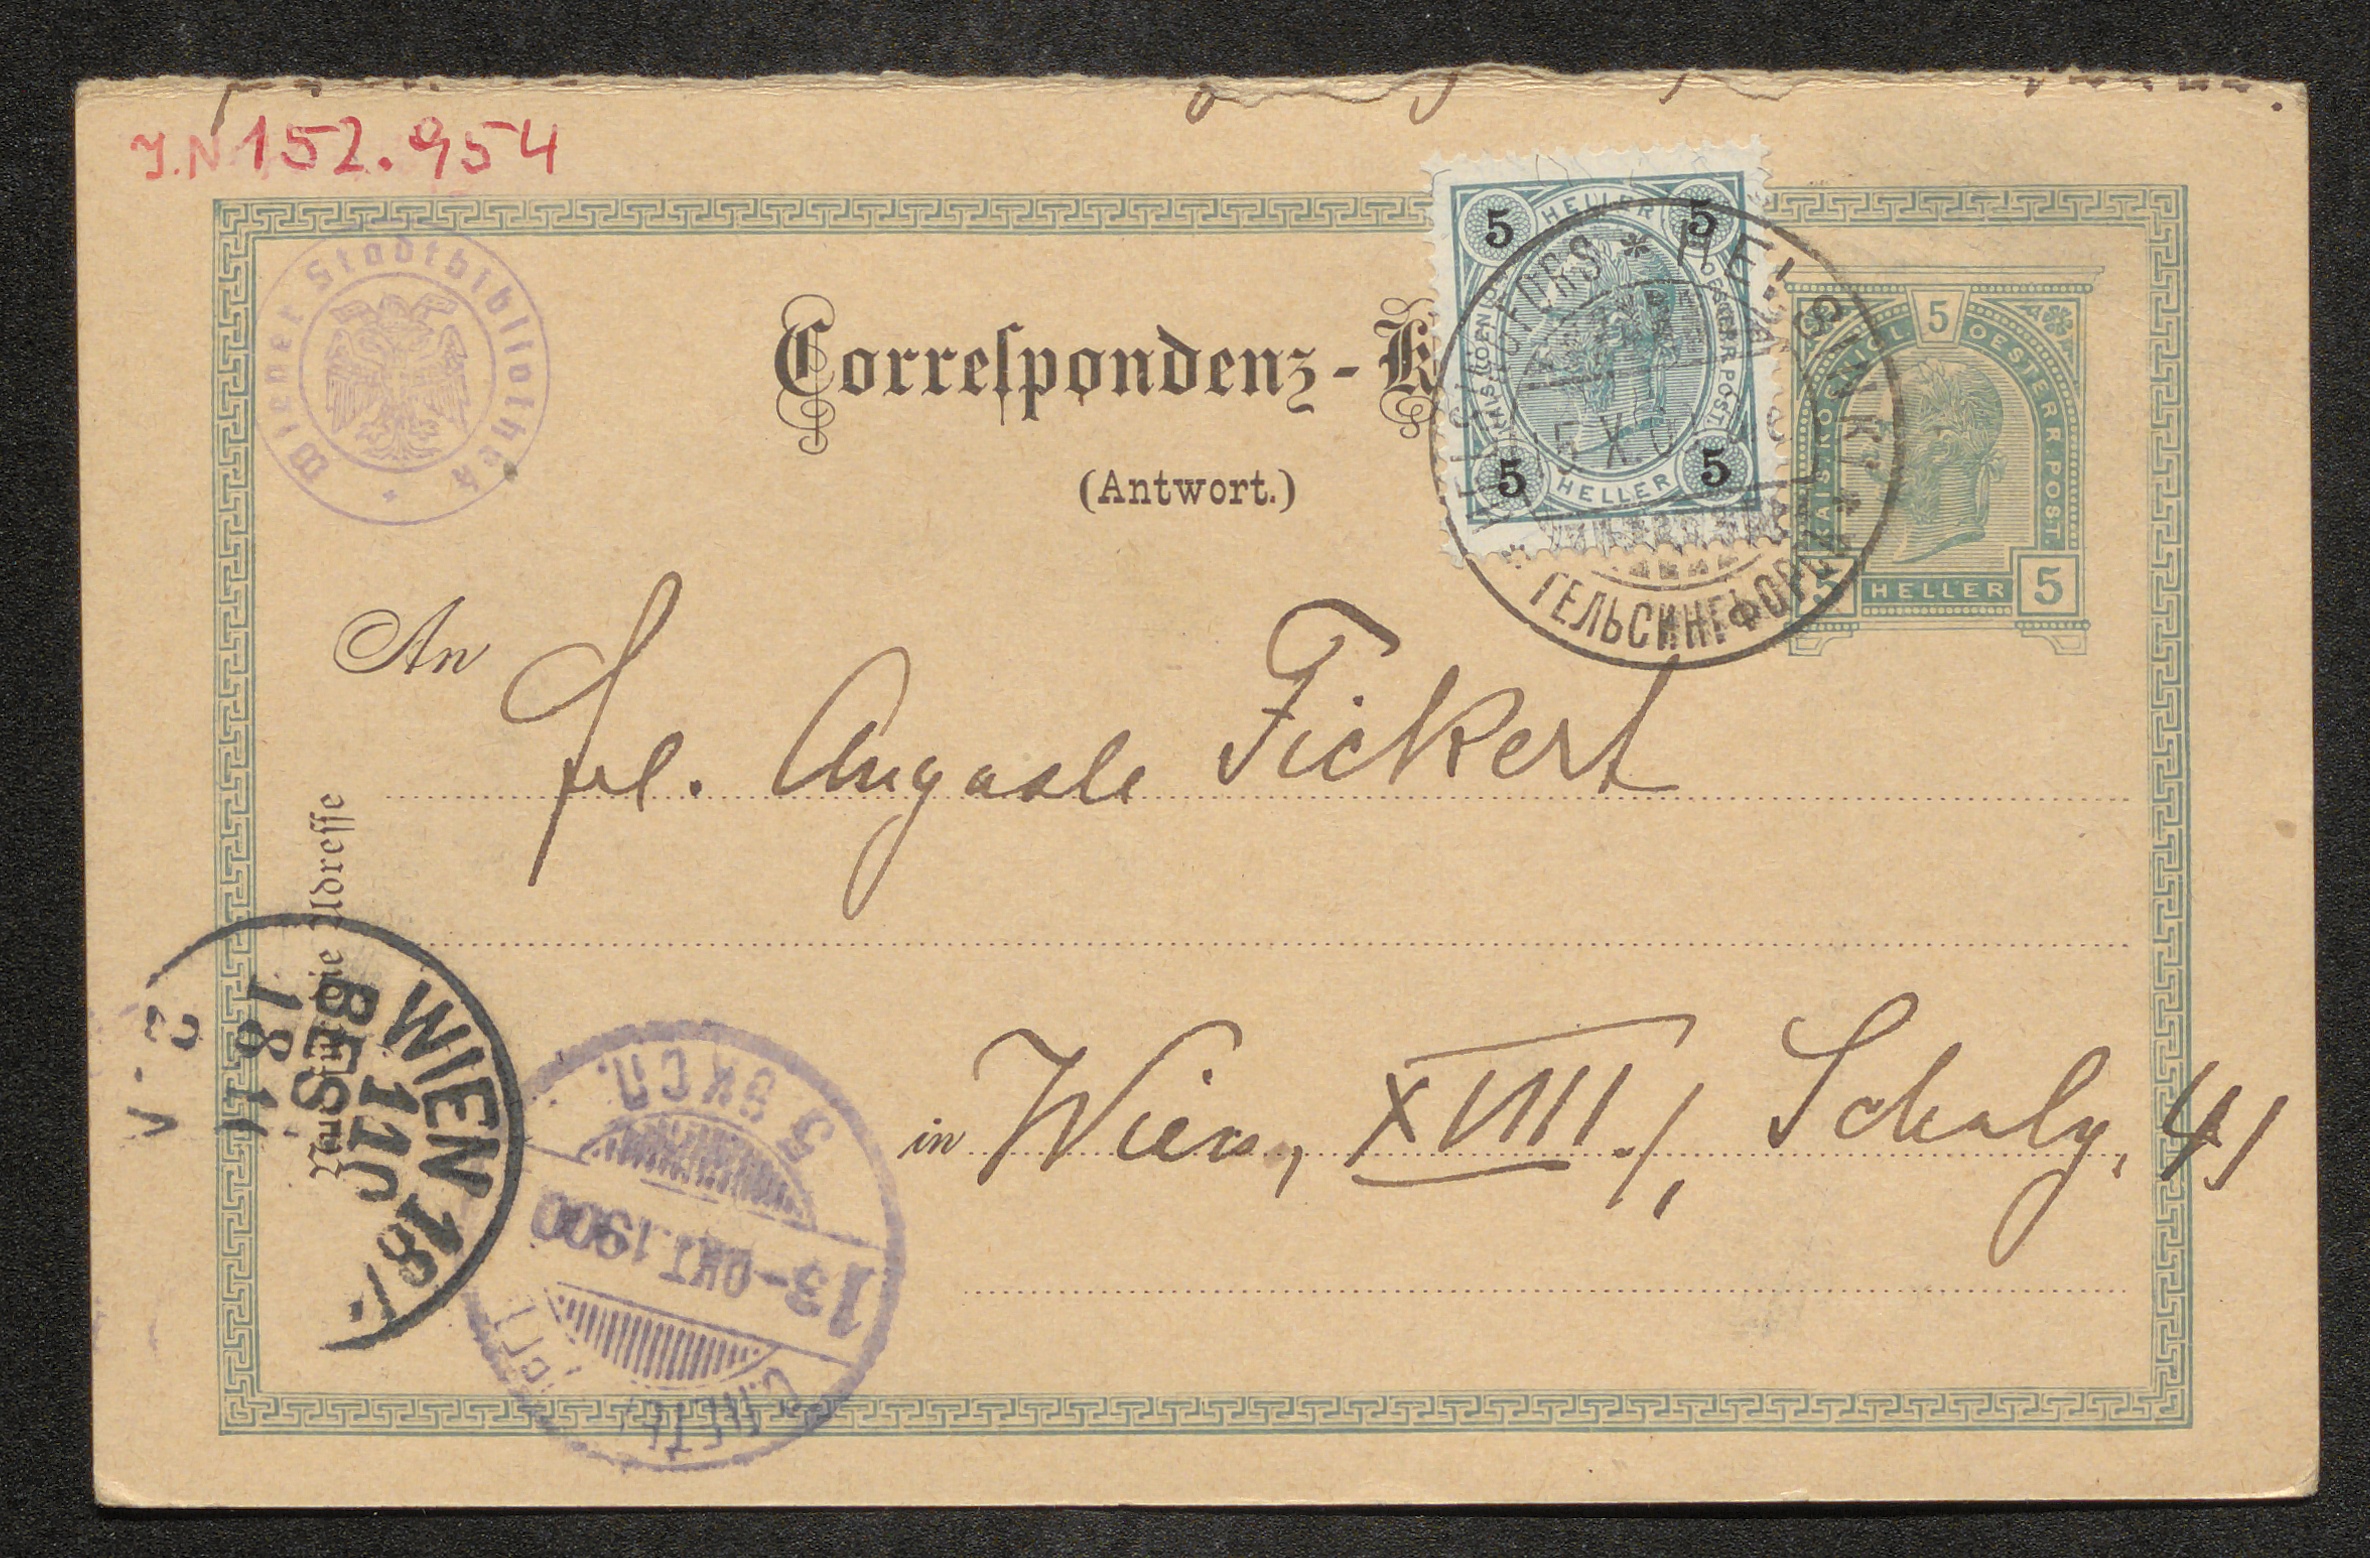 J.N 152.954
Wiener Stadtbibliothek
Correspondenz-K
(Antwort.)
5 HELLER 5
KAIS. KOENIGL. OESTERR. POST.
5 HELLER 5
HELSINGFORS * HELSINKI *
ГЕЛЬСИНГФОРСЪ
5
KAIS. KÖNIGL. OESTERR. POST
5 HELLER 5
An Frl. Auguste Fickert
in Wien, XVIII./1, Schulg. 41
Nur für die Adresse
WIEN 18/1
BES
3 ЭКСП.
13-ОКТ.1900
С.ПЕТЕ